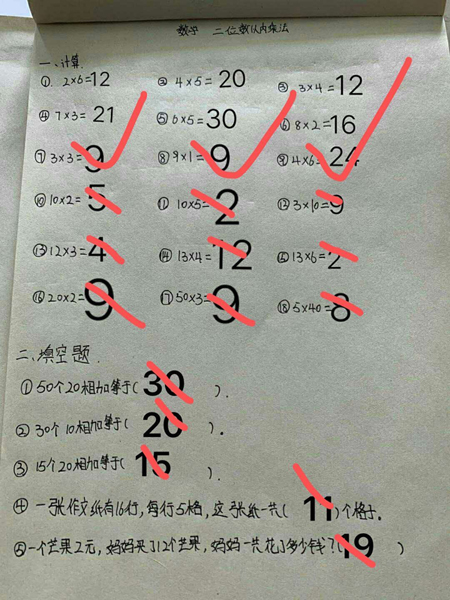 数学 二位数以内乘法
一、计算.
① 2×6=12 ② 4×5=20 ③ 3×4=12
④ 7×3=21 ⑤ 6×5=30 ⑥ 8×2=16
⑦ 3×3=9 ⑧ 9×1=9 ⑨ 4×6=24
⑩ 10×2=5 ⑪ 10×5=2 ⑫ 3×10=9
⑬ 12×3=4 ⑭ 13×4=12 ⑮ 13×6=2
⑯ 20×2=9 ⑰ 50×3=9 ⑱ 5×40=8
二、填空题.
① 50个20相加等于( 30 ).
② 30个10相加等于( 20 ).
③ 15个20相加等于( 15 ).
④ 一张作文纸有16行,每行5格,这张纸一共( 11 )个格子.
⑤ 一个芒果2元,妈妈买了12个芒果,妈妈一共花了多少钱?(19 )